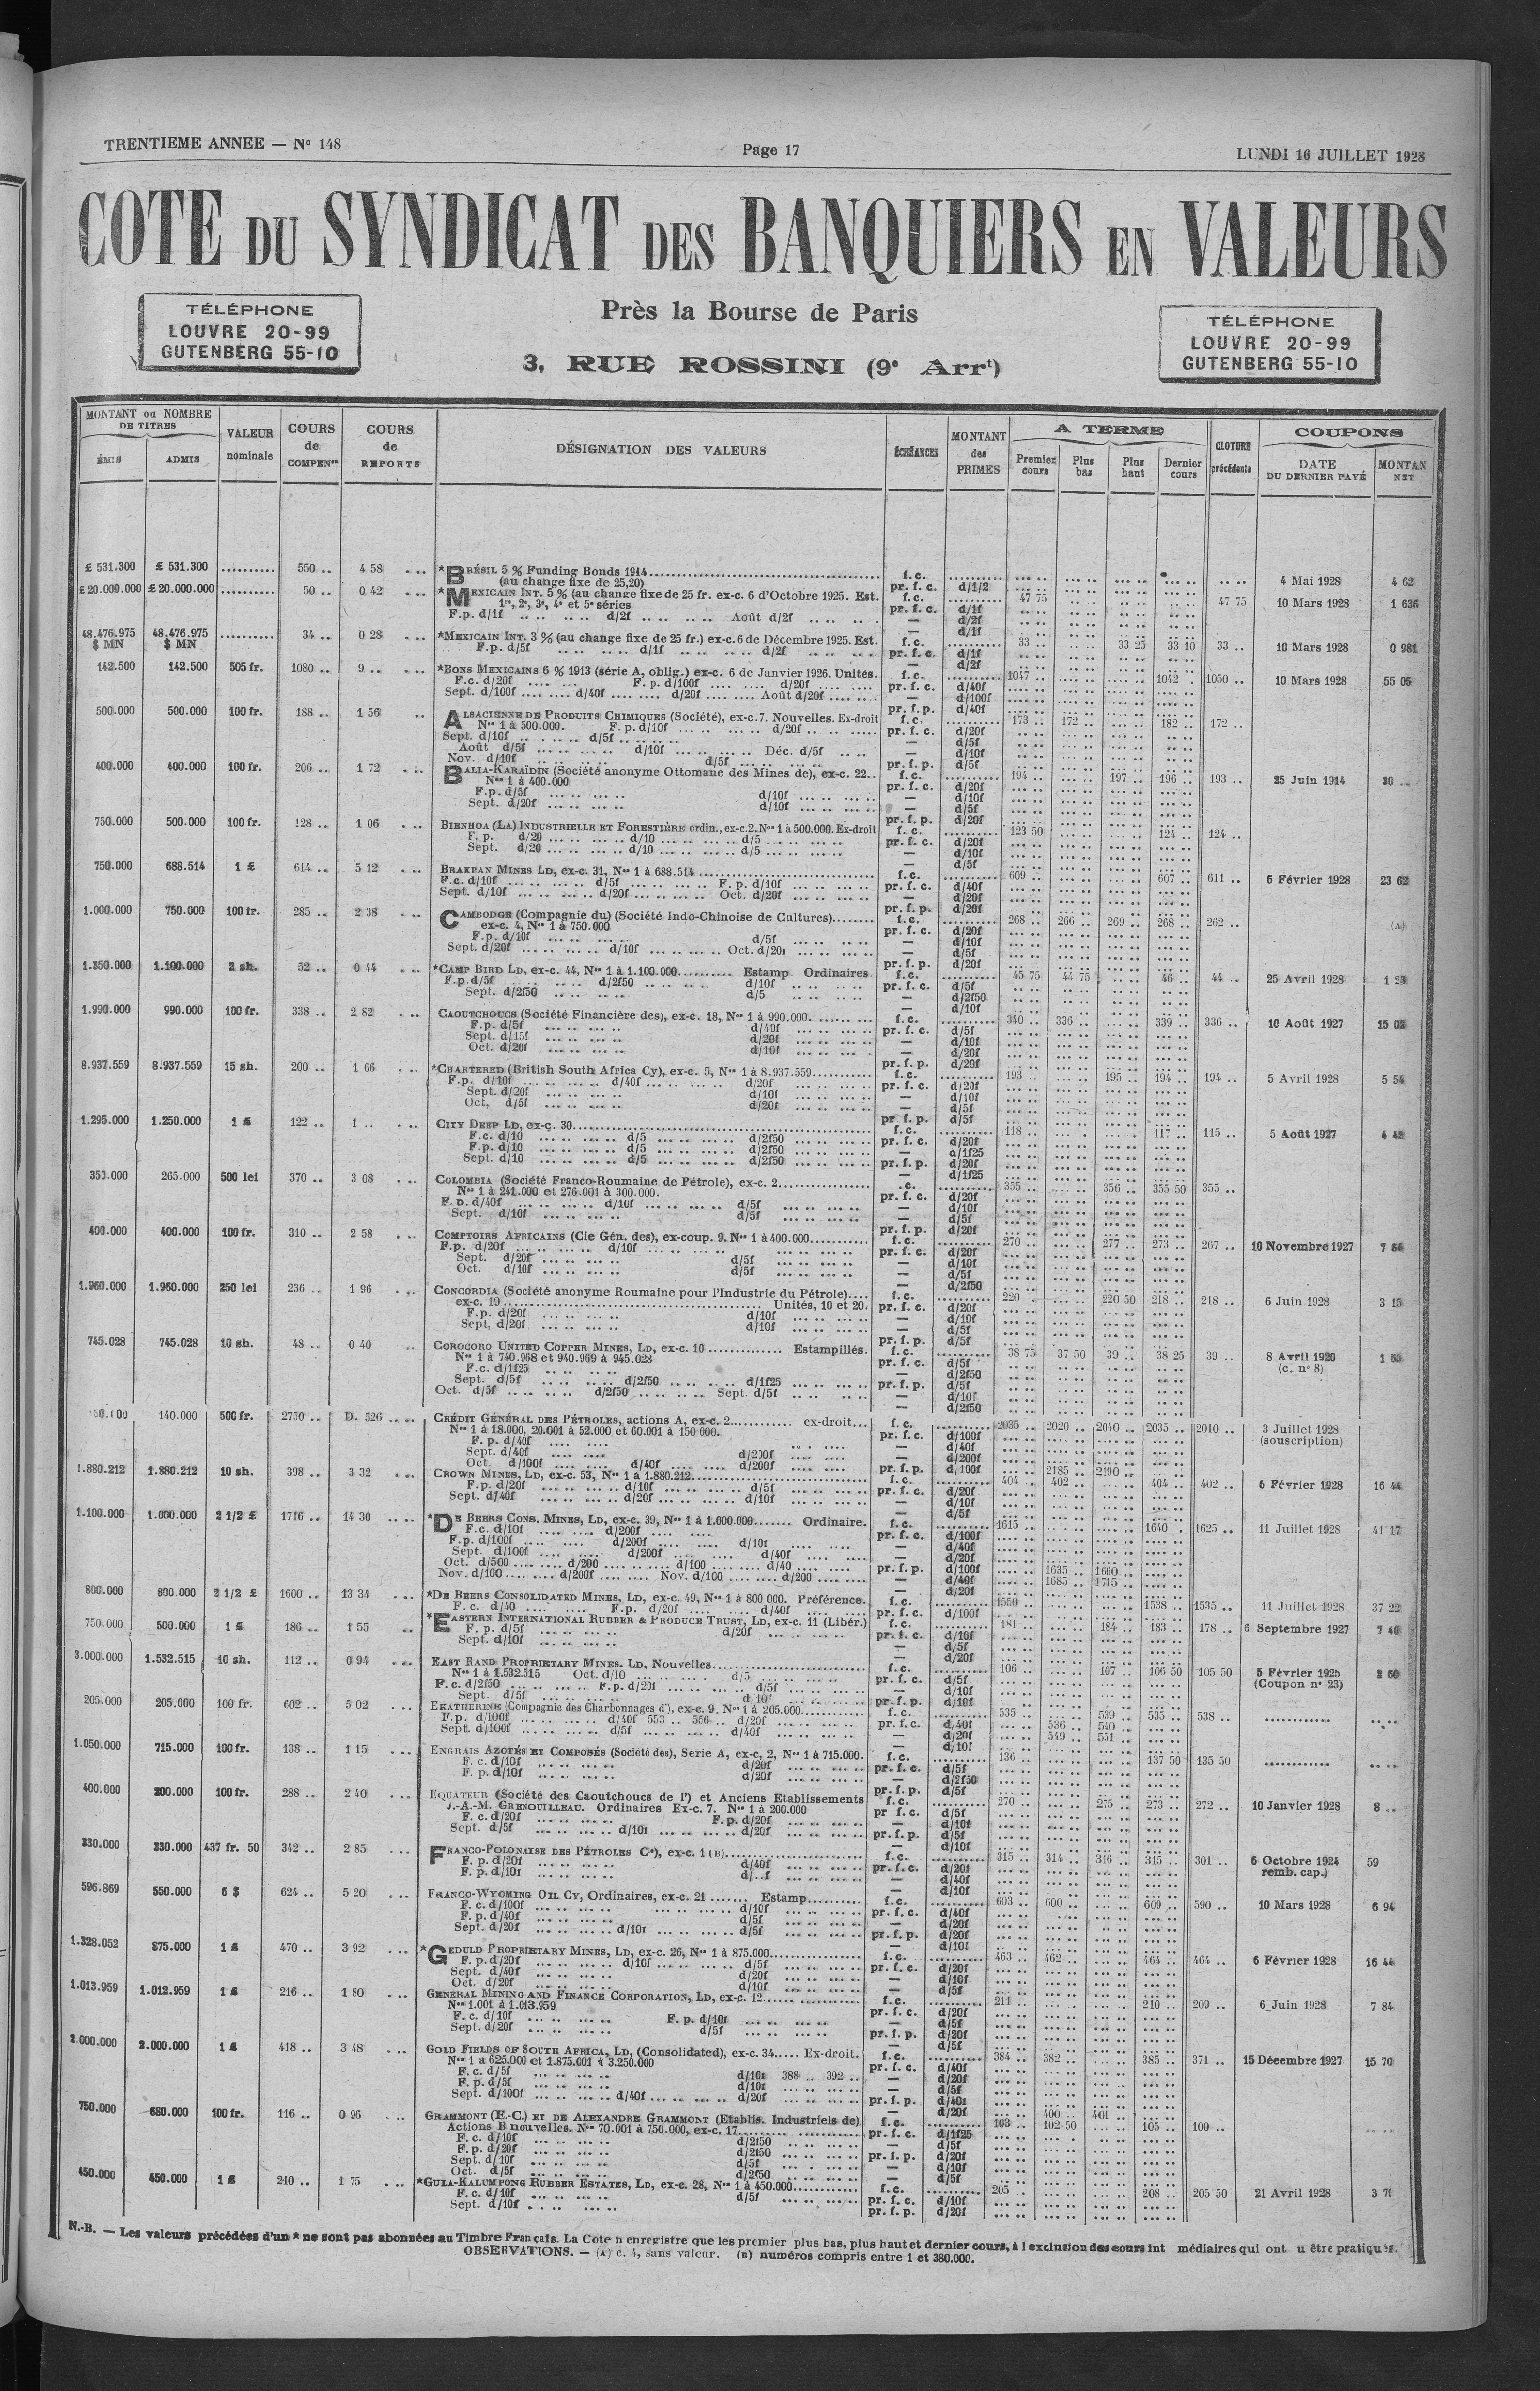 TRENTIEME ANNEE — N° 148
Page 17
LUNDI 16 JUILLET 1928
COTE DU SYNDICAT DES BANQUIERS EN VALEURS
TÉLÉPHONE
LOUVRE 20-99
GUTENBERG 55-10
Près la Bourse de Paris
3, RUE ROSSINI (9e Arrt)
TÉLÉPHONE
LOUVRE 20-99
GUTENBERG 55-10
MONTANT ou NOMBRE DE TITRES
ÉMIS
ADMIS
VALEUR nominale
COURS de COMPENon
COURS de REPORTS
DÉSIGNATION DES VALEURS
ÉCHÉANCES
MONTANT des PRIMES
A TERME
Premier cours
Plus bas
Plus haut
Dernier cours
CLOTURE précédente
COUPONS
DATE DU DERNIER PAYÉ
MONTAN NET
£ 531.300 £ 531.300 .......... 550 .. 4 58 *BRÉSIL 5 % Funding Bonds 1914 f.c. 4 Mai 1928 4 62
(au change fixe de 25,20) pr. f. c. d/1/2
£ 20.000.000 £ 20.000.000 .......... 50 .. 0 42 *MEXICAIN INT. 5 % (au change fixe de 25 fr. ex-c. 6 d'Octobre 1925. Est. f.c. 47 75 47 75 10 Mars 1928 1 636
1re, 2e, 3e, 4e et 5e séries pr. f. c. d/1f
F.p. d/1f d/2f Août d/2f — d/2f
48.476.975 $ MN 48.476.975 $ MN .......... 34 .. 0 28 *MEXICAIN INT. 3 % (au change fixe de 25 fr.) ex-c. 6 de Décembre 1925. Est. f.c. 33 .. 33 25 33 10 33 .. 10 Mars 1928 0 981
F.p. d/5f d/1f d/2f pr. f. c. d/1f
142.500 142.500 505 fr. 1080 .. 9 .. *BONS MEXICAINS 6 % 1913 (série A, oblig.) ex-c. 6 de Janvier 1926. Unités. f.c. 1047 .. 1042 .. 1050 .. 10 Mars 1928 55 05
F.c. d/20f F. p. d/100f d/20f pr. f. c. d/40f
Sept. d/100f d/40f d/20f Août d/20f — d/100f
500.000 500.000 100 fr. 188 .. 1 56 ALSACIENNE DE PRODUITS CHIMIQUES (Société), ex-c.7. Nouvelles. Ex-droit f.c. 173 .. 172 .. 182 .. 172 ..
Nos 1 à 500.000. F. p. d/10f d/20f pr. f. c. d/20f
Sept. d/10f d/5f — d/5f
Août d/5f d/10f Déc. d/5f — d/10f
Nov. d/10f d/5f pr. f. p. d/5f
400.000 400.000 100 fr. 206 .. 1 72 BALIA-KARAÏDIN (Société anonyme Ottomane des Mines de), ex-c. 22.. f.c. 194 .. 197 .. 196 .. 193 .. 25 Juin 1914 30 ..
Nos 1 à 400.000 pr. f. c. d/20f
F.p. d/5f d/10f — d/10f
Sept. d/20f d/10f — d/5f
750.000 500.000 100 fr. 128 .. 1 06 BIENHOA (LA) INDUSTRIELLE ET FORESTIÈRE ordin., ex-c.2. Nos 1 à 500.000. Ex-droit f.c. 123 50 124 .. 124 ..
F. p. d/20 d/10 d/5 pr. f. c. d/20f
Sept. d/20 d/10 d/5 — d/10f
750.000 688.514 1 £ 614 .. 5 12 BRAKPAN MINES LD, ex-c. 31, Nos 1 à 688.514 f.c. 609 .. 607 .. 611 .. 6 Février 1928 23 62
F.c. d/10f d/5f F. p. d/10f pr. f. c. d/40f
Sept. d/10f d/20f Oct. d/20f — d/20f
1.000.000 750.000 100 fr. 285 .. 2 38 CAMBODGE (Compagnie du) (Société Indo-Chinoise de Cultures) f.c. 268 .. 266 .. 269 .. 268 .. 262 .. (A)
ex-c. 4, Nos 1 à 750.000 pr. f. c. d/20f
F.p. d/10f d/5f — d/10f
Sept. d/20f d/10f Oct. d/20f — d/5f
1.350.000 1.100.000 2 sh. 52 .. 0 44 *CAMP BIRD LD, ex-c. 44, Nos 1 à 1.100.000 Estamp Ordinaires. f.c. 45 75 44 75 46 .. 44 .. 25 Avril 1928
F.p. d/5f d/2f50 d/10f pr. f. c. d/5f
Sept. d/2f50 d/5 — d/2f50
1.990.000 990.000 100 fr. 338 .. 2 82 CAOUTCHOUCS (Société Financière des), ex-c. 18, Nos 1 à 990.000. f.c. 340 .. 336 .. 339 .. 336 .. 10 Août 1927 15 03
F.p. d/5f d/40f pr. f. c. d/5f
Sept. d/15f d/20f — d/10f
Oct. d/20f d/10f — d/20f
8.937.559 8.937.559 15 sh. 200 .. 1 66 *CHARTERED (British South Africa Cy), ex-c. 5, Nos 1 à 8.937.559 f.c. 193 .. 195 .. 194 .. 194 .. 5 Avril 1928 5 54
F.p. d/10f d/40f d/20f pr. f. c. d/20f
Sept. d/20f d/10f — d/10f
Oct, d/5f d/20f — d/5f
1.295.000 1.250.000 1 £ 122 .. 1 .. CITY DEEP LD, ex-c. 30 f.c. 118 .. 117 .. 115 .. 5 Août 1927 4 42
F.c. d/10 d/5 d/2f50 pr. f. c. d/20f
F.p. d/10 d/5 d/2f50 — d/1f25
Sept. d/10 d/5 d/2f50 pr. f. p. d/20f
353.000 265.000 500 lei 370 .. 3 08 COLOMBIA (Société Franco-Roumaine de Pétrole), ex-c. 2 .c. 355 .. 356 .. 355 50 355 ..
Nos 1 à 241.000 et 276.001 à 300.000. pr. f. c. d/20f
F. p. d/40f d/10f d/5f — d/10f
Sept. d/10f d/5f — d/5f
400.000 400.000 100 fr. 310 .. 2 58 COMPTOIRS AFRICAINS (Cie Gén. des), ex-coup. 9. Nos 1 à 400.000 f.c. 270 .. 277 .. 273 .. 267 .. 10 Novembre 1927
F.p. d/20f d/10f pr. f. c. d/20f
Sept. d/20f d/5f — d/10f
Oct. d/10f d/5f — d/5f
1.960.000 1.960.000 250 lei 236 .. 1 96 CONCORDIA (Société anonyme Roumaine pour l'Industrie du Pétrole) f.c. 220 .. 220 50 218 .. 218 .. 6 Juin 1928 3 15
ex-c. 19 Unités, 10 et 20. pr. f. c. d/20f
F.p. d/20f d/10f — d/10f
Sept, d/20f d/10f — d/5f
745.028 745.028 10 sh. 48 .. 0 40 COROCORO UNITED COPPER MINES, LD, ex-c. 10 Estampillés. f.c. 38 75 37 50 39 .. 38 25 39 .. 8 Avril 1920
Nos 1 à 740.968 et 940.969 à 945.028 pr. f. c. d/5f (c. n° 8)
F.c. d/1f25 — d/2f50
Sept. d/5f d/2f50 d/1f25 pr. f. p. d/5f
Oct. d/5f d/2f50 Sept. d/5f — d/10f
140.000 500 fr. 2750 .. D. 526 .. CRÉDIT GÉNÉRAL DES PÉTROLES, actions A, ex-c. 2 ex-droit f.c. 2035 .. 2020 .. 2040 .. 2035 .. 2010 .. 3 Juillet 1928
Nos 1 à 18.000, 20.001 à 52.000 et 60.001 à 150 000. pr. f. c. d/100f (souscription)
F. p. d/40f — d/40f
Sept. d/40f d/200f — d/200f
Oct. d/100f d/40f d/200f pr. f. p. d/100f 2185 .. 2190 ..
1.880.212 1.880.212 10 sh. 398 .. 3 32 CROWN MINES, LD, ex-c. 53, Nos 1 à 1.880.212 f.c. 404 .. 402 .. 404 .. 402 .. 6 Février 1928 16 44
F.p. d/20f d/10f d/5f pr. f. c. d/20f
Sept. d/40f d/20f d/10f — d/10f
1.100.000 1.000.000 2 1/2 £ 1716 .. 14 30 *DE BEERS CONS. MINES, LD, ex-c. 39, Nos 1 à 1.000.000 Ordinaire. f.c. 1615 .. 1640 .. 1625 .. 11 Juillet 1928 41 17
F.c. d/10f d/200f pr. f. c. d/100f
F.p. d/100f d/200f d/10f — d/40f
Sept. d/100f d/200f d/40f — d/20f
Oct. d/500 d/200 d/100 d/40 pr. f. p. d/100f 1635 .. 1660 ..
Nov. d/100 d/200f Nov. d/100 d/200 — d/40f 1685 .. 1715 ..
800.000 800.000 2 1/2 £ 1600 .. 13 34 *DE BEERS CONSOLIDATED MINES, LD, ex-c. 49, Nos 1 à 800 000. Préférence. f.c. 1550 .. 1538 .. 1535 .. 11 Juillet 1928 37 22
F. c. d/40 F.p. d/20f d/40f pr. f. c. d/100f
750.000 500.000 1 £ 186 .. 1 55 *EASTERN INTERNATIONAL RUBBER & PRODUCE TRUST, LD, ex-c. 11 (Libér.) f.c. 181 .. 184 .. 183 .. 178 .. 6 Septembre 1927 7 40
F. p. d/5f d/20f pr. f. c. d/10f
Sept. d/10f — d/5f
3.000.000 1.532.515 10 sh. 112 .. 0 94 EAST RAND PROPRIETARY MINES. LD, Nouvelles f.c. 106 .. 107 .. 106 50 105 50 5 Février 1925 2 60
Nos 1 à 1.532.515 Oct. d/10 d/5 pr. f. c. d/5f (Coupon n° 23)
F. c. d/2f50 F.p. d/2f d/5f — d/10f
Sept. d/5f d/10f pr. f. p. d/10f
205.000 205.000 100 fr. 602 .. 5 02 EKATHERINE (Compagnie des Charbonnages d'), ex-c. 9. Nos 1 à 205.000 f.c. 535 .. 539 .. 535 .. 538 ..
F.p. d/100f d/40f 553 .. 556 .. d/20f pr. f. c. d/40f 536 .. 540 ..
Sept. d/100f d/5f d/40f — d/20f 549 .. 551 ..
1.050.000 715.000 100 fr. 138 .. 1 15 ENGRAIS AZOTÉS ET COMPOSÉS (Société des), Serie A, ex-c. 2, Nos 1 à 715.000. f.c. 136 .. 137 50 135 50
F. c. d/10f d/20f pr. f. c. d/5f
F. p. d/10f d/20f — d/2f50
400.000 200.000 100 fr. 288 .. 2 40 EQUATEUR (Société des Caoutchoucs de l') et Anciens Etablissements f.c. 270 .. 275 .. 273 .. 272 .. 10 Janvier 1928 8 ..
J.-A.-M. GRENOUILLEAU. Ordinaires Ex-c. 7. Nos 1 à 200.000 pr f. c. d/5f
F. c. d/20f F. p. d/20f — d/10f
Sept. d/5f d/10f d/20f pr. f. p. d/5f
330.000 330.000 437 fr. 50 342 .. 2 85 FRANCO-POLONAISE DES PÉTROLES Cie), ex-c. 1 (B) f.c. 315 .. 314 .. 316 .. 315 .. 301 .. 6 Octobre 1924 59
F. p. d/20f d/40f pr. f. c. d/20f remb. cap.)
F. p. d/10f d/..f — d/40f
596.869 550.000 6 $ 624 .. 5 20 FRANCO-WYOMING OIL Cy, Ordinaires, ex-c. 21 Estamp. f.c. 603 .. 600 .. 609 .. 590 .. 10 Mars 1928 6 94
F. c. d/100f d/10f pr. f. c. d/40f
F. p. d/40f d/5f — d/20f
Sept. d/20f d/10f d/5f pr. f. p. d/20f
1.328.052 875.000 1 £ 470 .. 3 92 *GEDULD PROPRIETARY MINES, LD, ex-c. 26, Nos 1 à 875.000 f.c. 463 .. 462 .. 464 .. 464 .. 6 Février 1928 16 44
F. p. d/20f d/10f d/5f pr. f. c. d/20f
Sept. d/40f d/20f — d/10f
Oct. d/20f d/10f — d/5f
1.013.959 1.012.959 1 £ 216 .. 1 80 GENERAL MINING AND FINANCE CORPORATION, LD, ex-c. 12 f.c. 211 .. 210 .. 209 .. 6 Juin 1928 7 84
Nos 1.001 à 1.013.959 pr. f. c. d/20f
F. c. d/10f F. p. d/10f — d/5f
Sept. d/20f d/5f pr. f. p. d/20f
2.000.000 1 £ 418 .. 3 48 GOLD FIELDS OF SOUTH AFRICA, LD, (Consolidated), ex-c. 34 Ex-droit. f.c. 384 .. 382 .. 385 .. 371 .. 15 Décembre 1927 15 70
Nos 1 à 625.000 et 1.875.001 à 3.250.000 pr. f. c. d/40f
F. c. d/5f d/10f 388 .. 392 .. — d/20f
F. p. d/5f d/10f — d/5f
Sept. d/100f d/40f d/20f pr. f. p. d/40f
— d/20f 400 .. 401 ..
750.000 680.000 100 fr. 116 .. 0 96 GRAMMONT (E.-C.) ET DE ALEXANDRE GRAMMONT (Etablis. Industriels de) f.c. 103 .. 102 50 105 .. 100 ..
Actions B nouvelles. Nos 70.001 à 750.000, ex-c. 17 pr. f. c. d/1f25
F. c. d/10f d/2f50 — d/5f
F. p. d/20f d/2f50 pr. f. p. d/20f
Sept. d/10f d/5f — d/10f
Oct. d/5f d/2f50 — d/5f
450.000 450.000 1 £ 210 .. 1 75 *GULA-KALUMPONG RUBBER ESTATES, LD, ex-c. 28, Nos 1 à 450.000 f.c. 205 .. 208 .. 205 50 21 Avril 1928
F. c. d/10f d/5f pr. f. c. d/10f
Sept. d/10f pr. f. p. d/20f
N.-B. — Les valeurs précédées d'un * ne sont pas abonnées au Timbre Français. La Cote n enregistre que les premier plus bas, plus haut et dernier cours, à l exclusion des cours int médiaires qui ont u être pratiqués.
OBSERVATIONS. — (A) c. 4, sans valeur. (B) numéros compris entre 1 et 380.000.